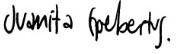 Juanita Spelberts.